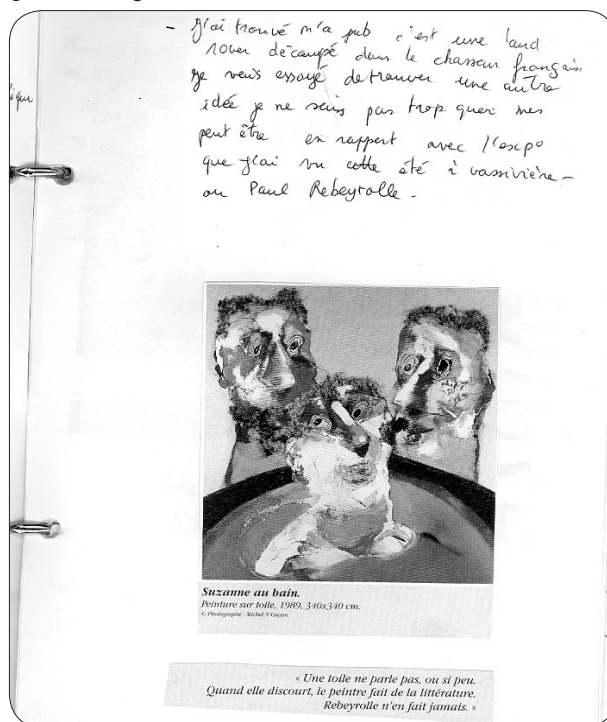 - J'ai trouvé m'a pub c'est une land
rover découpé dans le chasseur français.
je veis essayé detrouver une autre
idée je ne sais pas trop quoi mes
peut être en rapport avec l'expo
que j'ai vu cette été à vassivière-
ou Paul Rebeyrolle-
Suzanne au bain.
Peinture sur toile, 1989, 340x340 cm.
© Photographe : Michel N'Guyen.
« Une toile ne parle pas, ou si peu.
Quand elle discourt, le peintre fait de la littérature.
Rebeyrolle n'en fait jamais. »